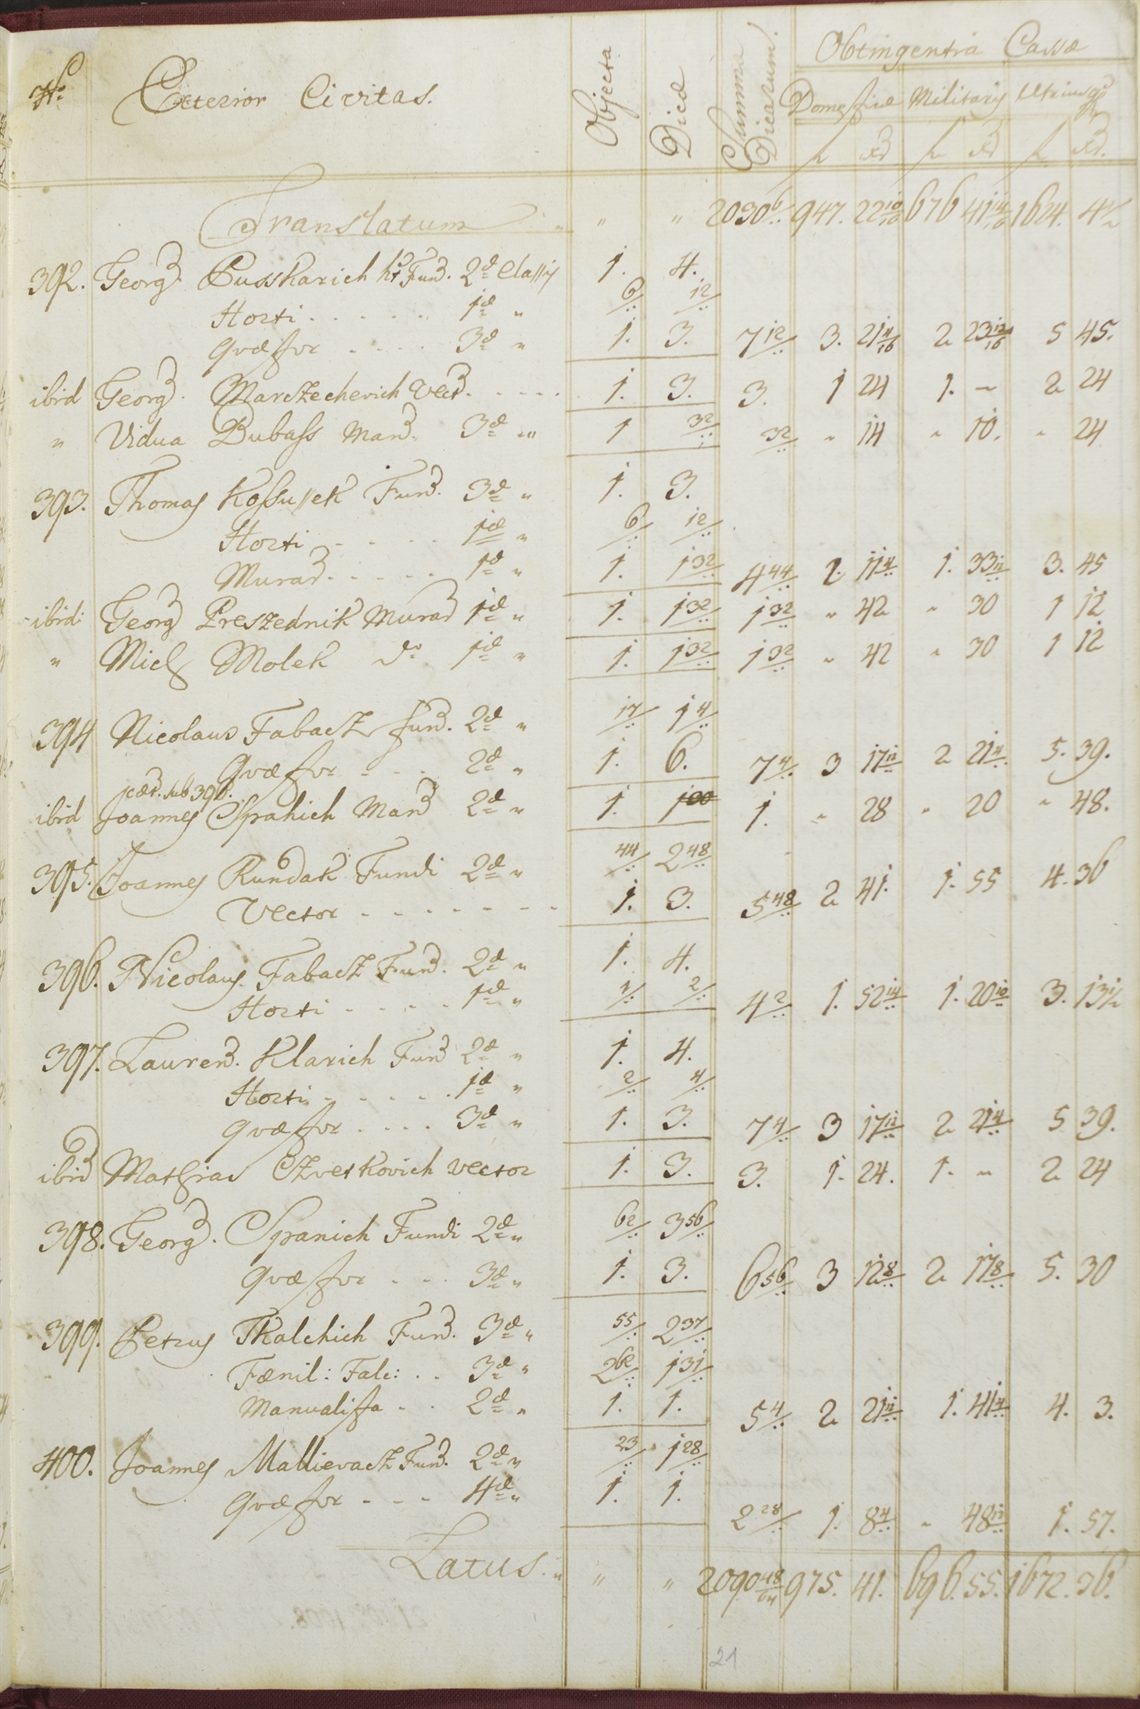 No Exterior Civitas. Objecta Dicæ Summa Dicarum Obtingentia Cassæ
Domesticæ Militaris Utriusq
f xd f xd f xd.
Translatum " " " 2030 6/.. 947. 22 10/16 676 41 14/16 1624. 4 1/2
392. Georg Pusskarich Fund. 2dæ Classis 1. 4.
Horti . . . . . 1æ " 6/.. 12/..
Quæstor . . . . 3æ " 1. 3. 7 12/.. 3. 21 4/16 2 23 12/16 5 45.
ibid Georg. Marczechevich Vect. . . . . 1. 3. 3. 1 24 1. ~ 2 24
" Vidua Bubass Man. 3æ " 1 32/.. 32/.. " 14 " 10. " 24
393. Thomas Kossussek Fund. 3æ " 1. 3.
Horti . . . . 1æ " 6/.. 12/..
Murar. . . . . 1æ " 1. 1 32/.. 4 44/.. 2. 11 4/.. 1. 33 12/.. 3. 45
ibid: Georg Preszednik Murar 1æ " 1. 1 32/.. 1 32/.. " 42 " 30 1 12
" Mich Molek do 1æ " 1. 1 32/.. 1 32/.. " 42 " 30 1 12
394 Nicolaus Fabacz fund. 2æ " 17/.. 1 4/..
Quæstor . . . 2æ " 1. 6. 7 4/.. 3 17 12/.. 2 21 4/.. 5. 39.
jced. sub 396.
ibid Joannes Spahich Man 2æ " 1. 1 00 1. " 28 " 20 " 48.
395. Joannes Rundak Fundi 2æ " 44/.. 2 48/..
Vector . . . . . . . 1. 3. 5 48/.. 2 41. 1. 55 4. 36
396. Nicolaus Fabacz Fund. 2æ " 1. 4.
Horti . . . . 1æ " 1/.. 2/.. 4 2/.. 1. 52 14/.. 1. 20 10/.. 3. 13 1/2
397. Lauren. Klarich Fund 2æ " 1. 4.
Horti . . . . . 1æ " 2/.. 4/..
Quæstor . . . . 3æ " 1. 3. 7 4/.. 3 17 12/.. 2 21 4/.. 5 39.
ibid Mathias Czvetkovich Vector 1. 3. 3. 1. 24. 1. ~ 2 24
398. Georg. Spanich Fundi 2æ " 62/.. 3 56/..
Quæstor . . . 3æ " 1. 3. 6 56/.. 3 12 8/.. 2 17 8/.. 5. 30
399. Petrus Tkalchich Fund. 3æ " 55/.. 2 37/..
Fænil: Falc: . . 3æ " 2 62/.. 1 31/..
Manualista . . 2æ " 1. 1. 5 4/.. 2 21 12/.. 1. 41 4/.. 4. 3.
400. Joannes Mallievacz Fund. 2æ " 23/.. 1 28/..
Quæstor . . . 4æ " 1. 1. 2 28/.. 1. 8 4/.. " 48 12/.. 1. 57.
Latus. " " " 2090 48/64 975. 41. 696. 55. 1672. 36.
21